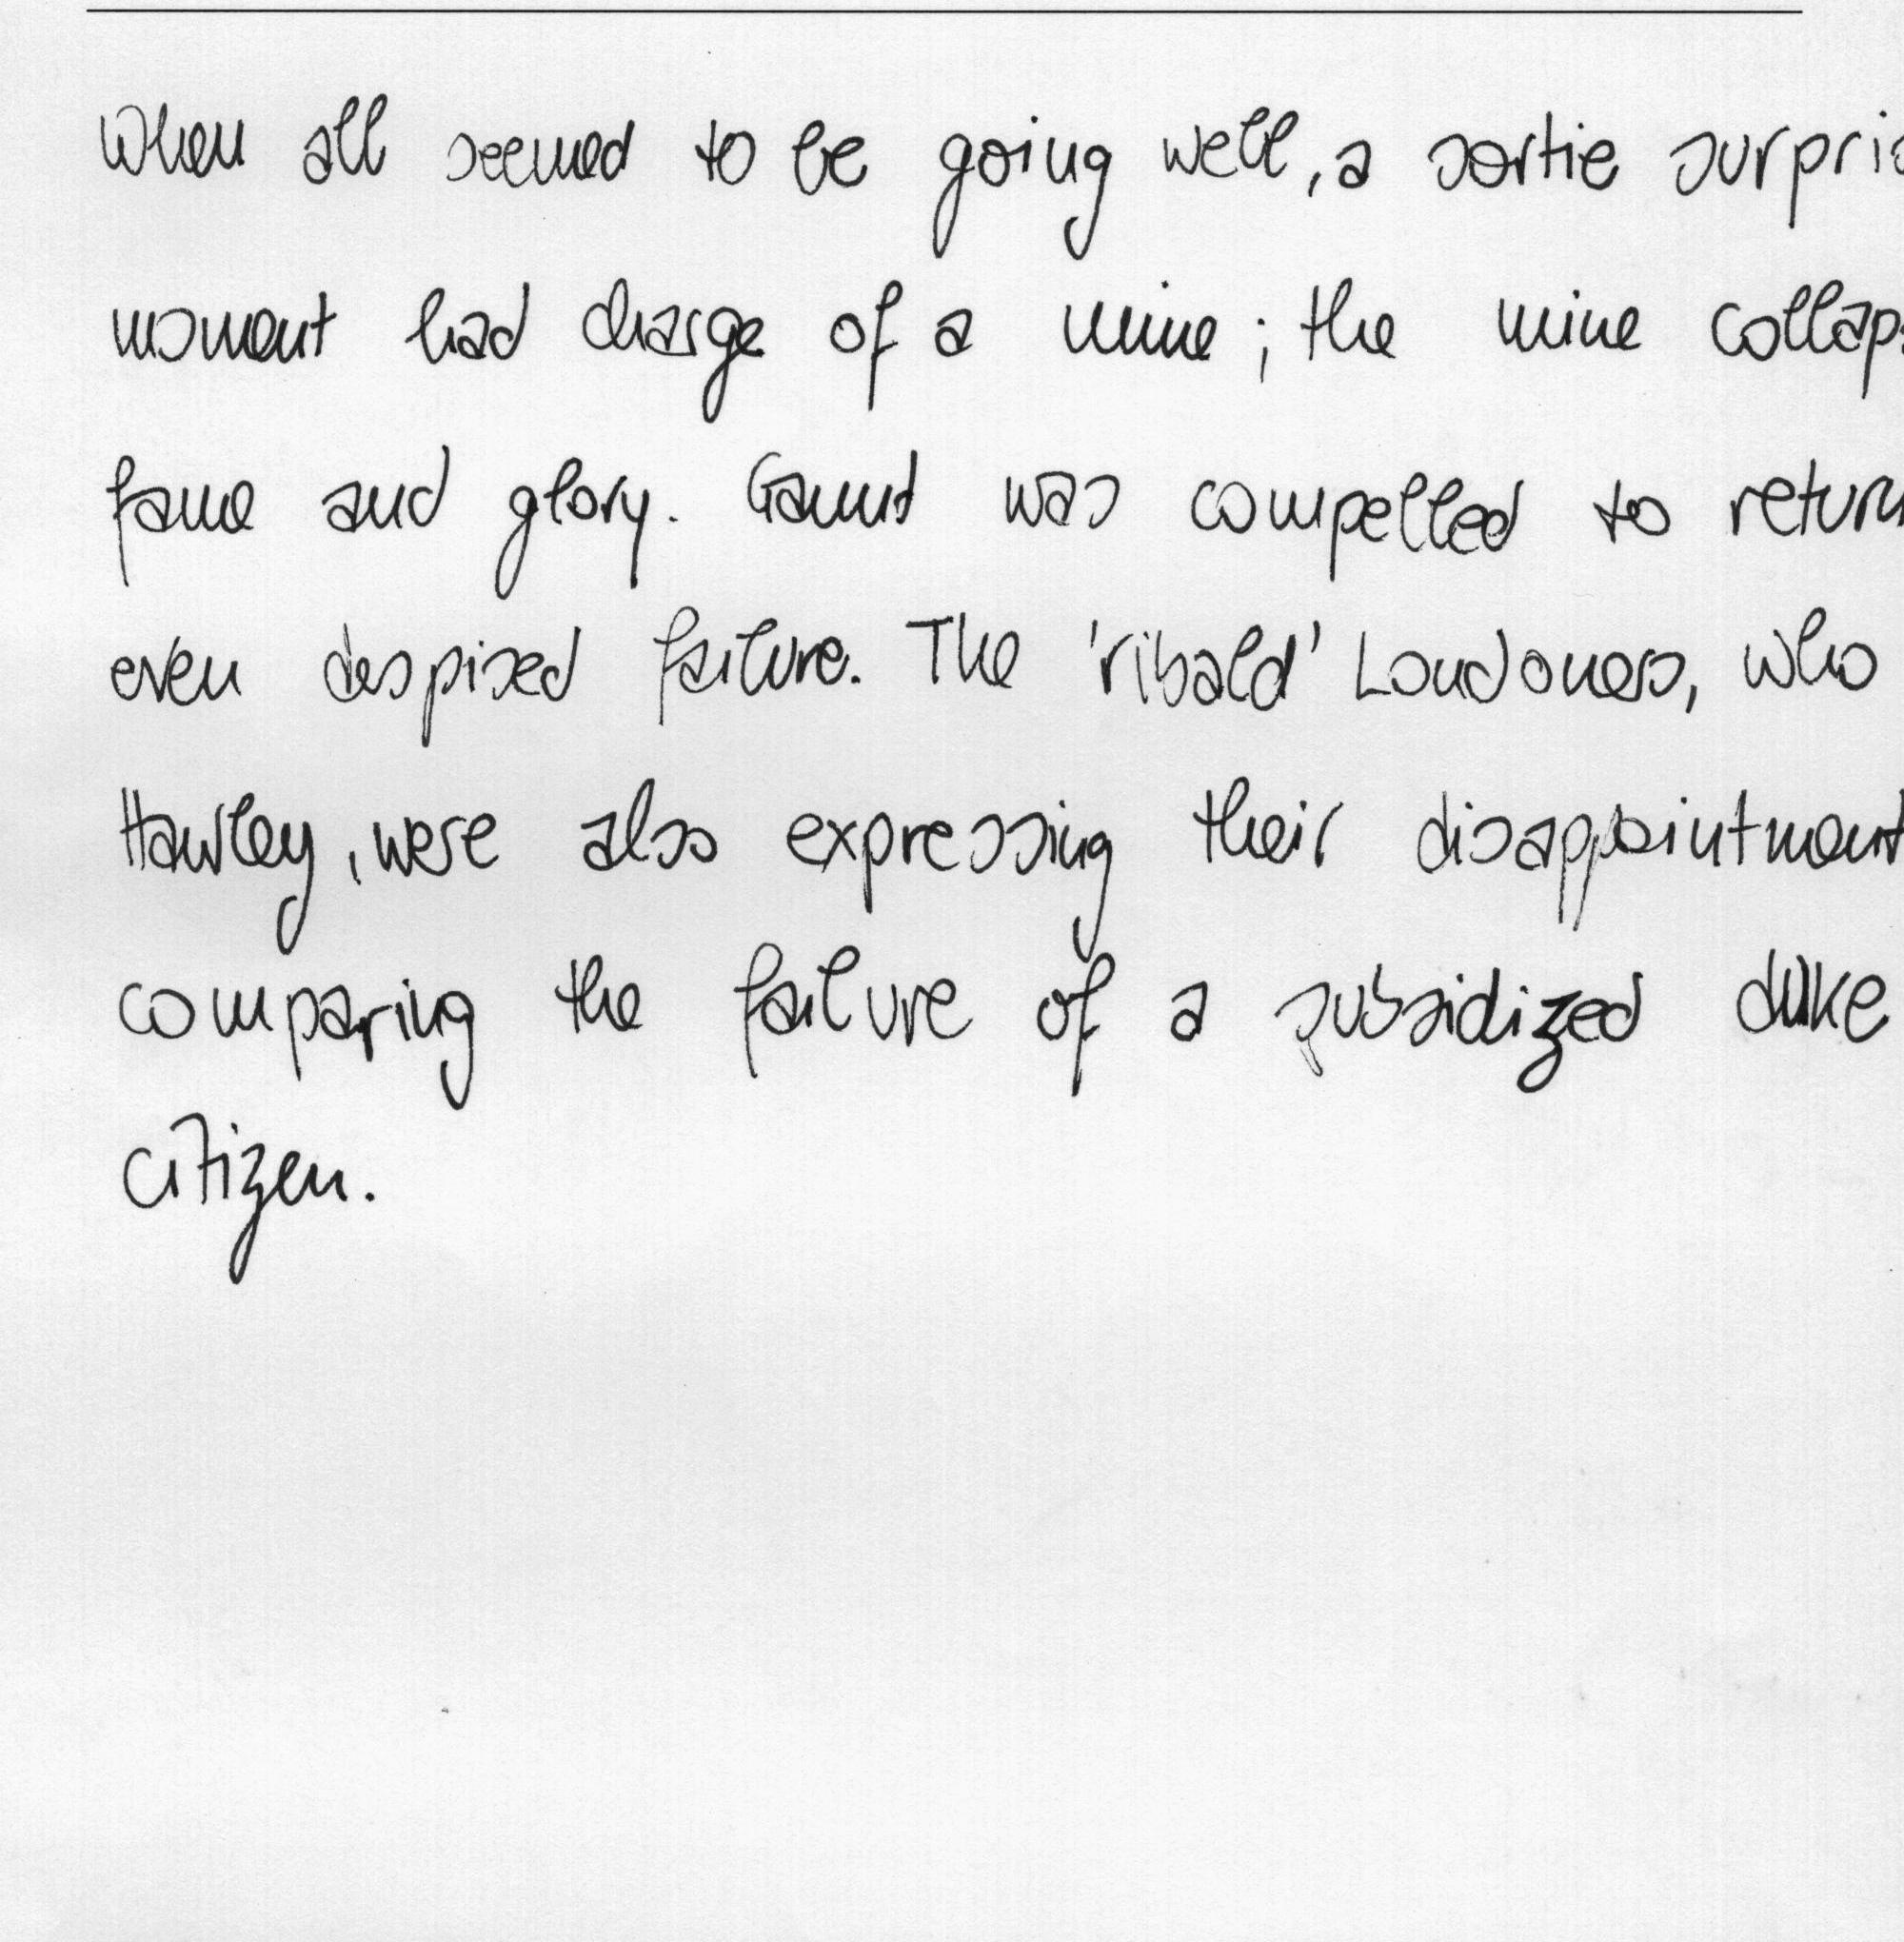 When all seemed to be going well, a sortie
moment had charge of a mine; the mine
fame and glory. Gaunt was compelled to return
even despised failure. The 'ribald' Londoners, who
Hawley, were also expressing their disappointment
comparing the failure of a subsidized duke
citizen.